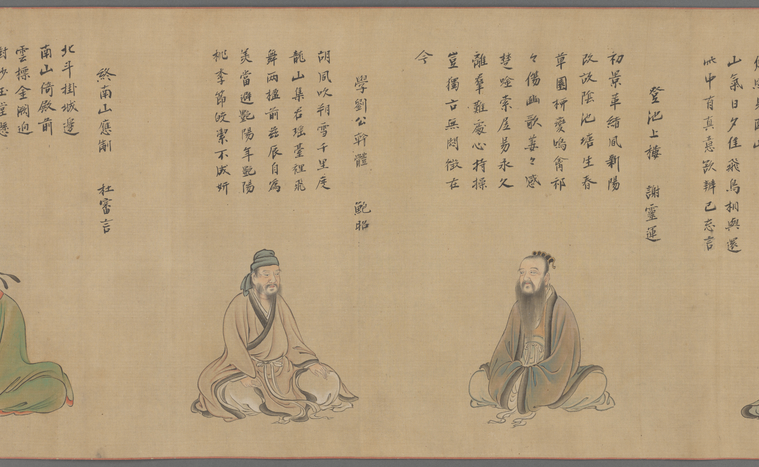 山氣日夕佳飛鳥相與還
此中有真意欲辨已忘言
登池上樓 謝靈運
初景革緒風新陽
改故陰池塘生春
草園柳變鳴禽祁
々傷豳歌萋々感
楚吟索居易永久
離羣難處心持操
豈獨古無悶徵在
今
學劉公幹體 鮑照
胡風吹朔雪千里度
龍山集君瑤臺裡飛
舞兩楹前茲辰自為
美當避艷陽年艷陽
桃李節皎潔不成妍
終南山應制 杜審言
北斗掛城邊
南山倚殿前
雲標金闕迥
樹杪玉堂懸